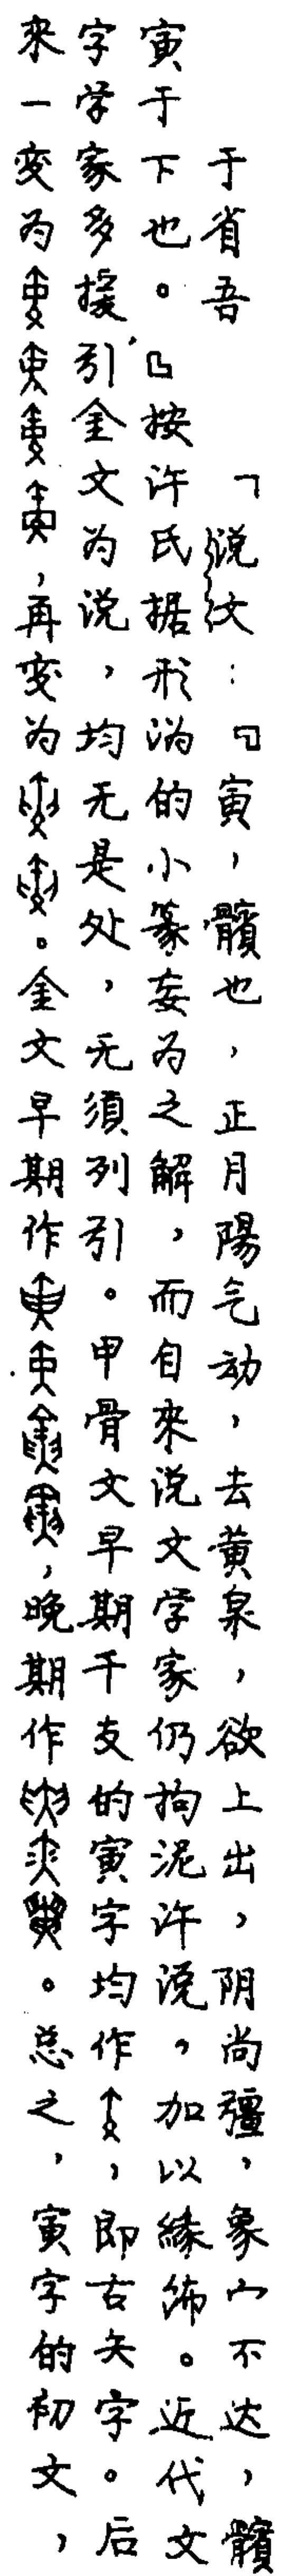 于省吾 「说文：『寅，髕也，正月陽气动，去黄泉，欲上出，阴尚彊，象宀不达，髕
寅于下也。』按许氏据形沩的小篆妄为之解，而自来说文学家仍拘泥许说，加以緣饰。近代文
字学家多援引金文为说，均无是处，无须列引。甲骨文早期干支的寅字均作，即古矢字。后
来一变为，再变为。金文早期作，晚期作。总之，寅字的初文，